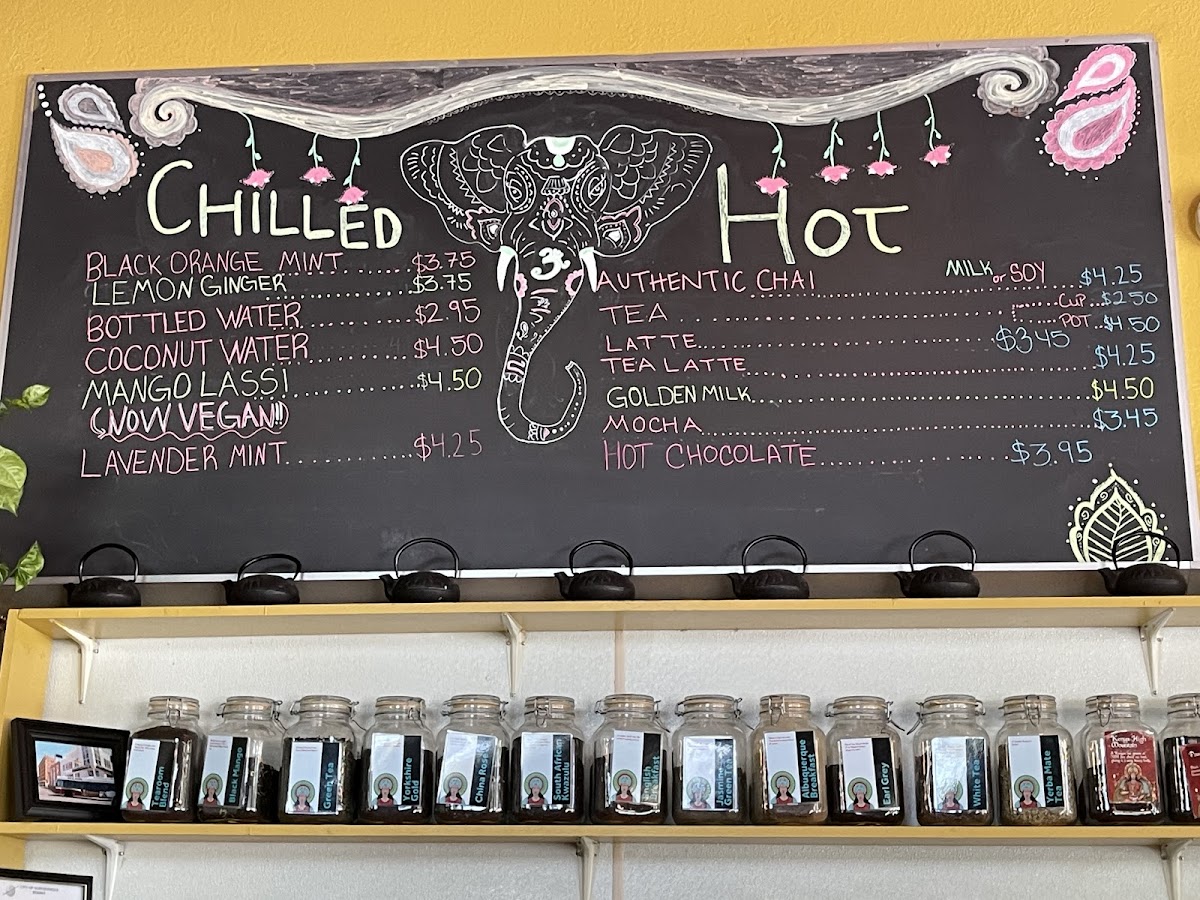 CHILLED
BLACK ORANGE MINT......$3.75
LEMON GINGER..............$3.75
BOTTLED WATER............$2.95
COCONUT WATER..........$4.50
MANGO LASSI..............$4.50
(NOW VEGAN!!)
LAVENDER MINT..............$4.25
HOT
AUTHENTIC CHAI..............MILK or SOY..$4.25
TEA..............CUP..$2.50
POT..$4.50
LATTE..............$3.45
TEA LATTE..............$4.25
GOLDEN MILK..............$4.50
MOCHA..............$3.45
HOT CHOCOLATE..............$3.95
Tearoom Blend
Black Mango
Green Tea
Yorkshire Gold
China Rose
South African Kwazulu
English Breakfast
Jasmine Green Tea
Albuquerque Breakfast
Earl Grey
White Tea
Yerba Mate Tea
Kenya High Mountain